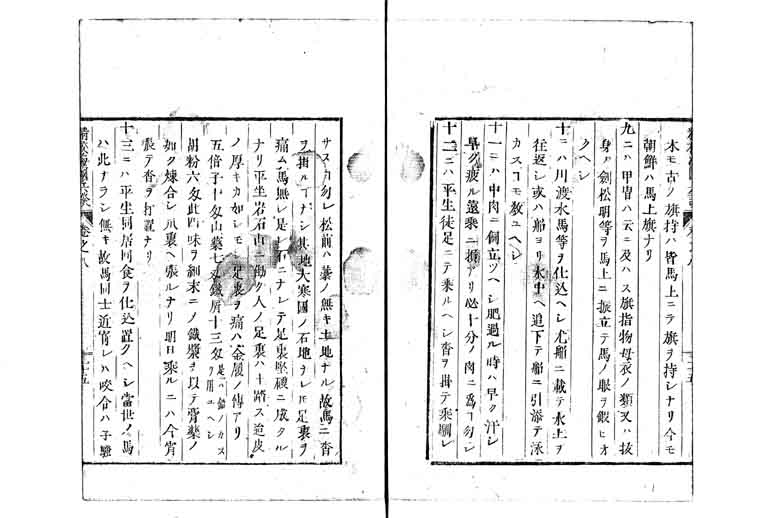 木モ古ノ旗持ハ皆馬上ニテ旗ヲ持シナリ今モ
朝鮮ハ馬上旗ナリ
九ニハ甲冑ハ云ニ及ハス旗指物母衣ノ類又ハ抜
身ノ劍松明等ヲ馬上ニ振立テ馬ノ眼ヲ鍜ヒオ
クヘシ
十ニハ川渡水馬等ヲ仕込ヘシ尤船ニ載テ水上ヲ
往返シ或ハ船ヨリ水中ヘ追下テ船ニ引添テ泳
カスコモ教ユヘシ
十一ニハ中肉ニ飼立ツヘシ肥過ル時ハ早ク汗シ
早ク疲ル遠乗ニ損アリ必十分ノ肉ニ為コ勿レ
十二ニハ平生徒足ニテ乗ルヘシ沓ヲ掛テ乗馴レ
サスコ勿レ松前ハ藁ノ無キ土地ナル故馬ニ沓
ヲ掛ルコナシ其地大寒國ノ石地ナレ𪜈足裏ヲ
痛ム馬無シ是ナニナレテ足裏堅硬ニ成タル
ナリ平生岩石山ニ働ク人ノ足裏ハ十踏ス迠皮
ノ厚キカ如シモシ足裏ヲ痛ハ金履ノ傳アリ
五倍子十匁山墓七匁鐵屑十三匁是ハ鍛ノカスヲ用ユヘシ
胡粉六匁此四味ヲ細末ニノ鐵漿ヲ以テ膏藥ノ
如ク煉合シ爪裏ヘ張ルナリ明日乘ルニハ今宵
張テ沓ヲ打置ナリ
十三ニハ平生同居同食ヲ仕込置クヘシ當世ノ馬
ハ此ナラシ無キ故馬同士近寄レハ咬合ハ子騒
卷之八